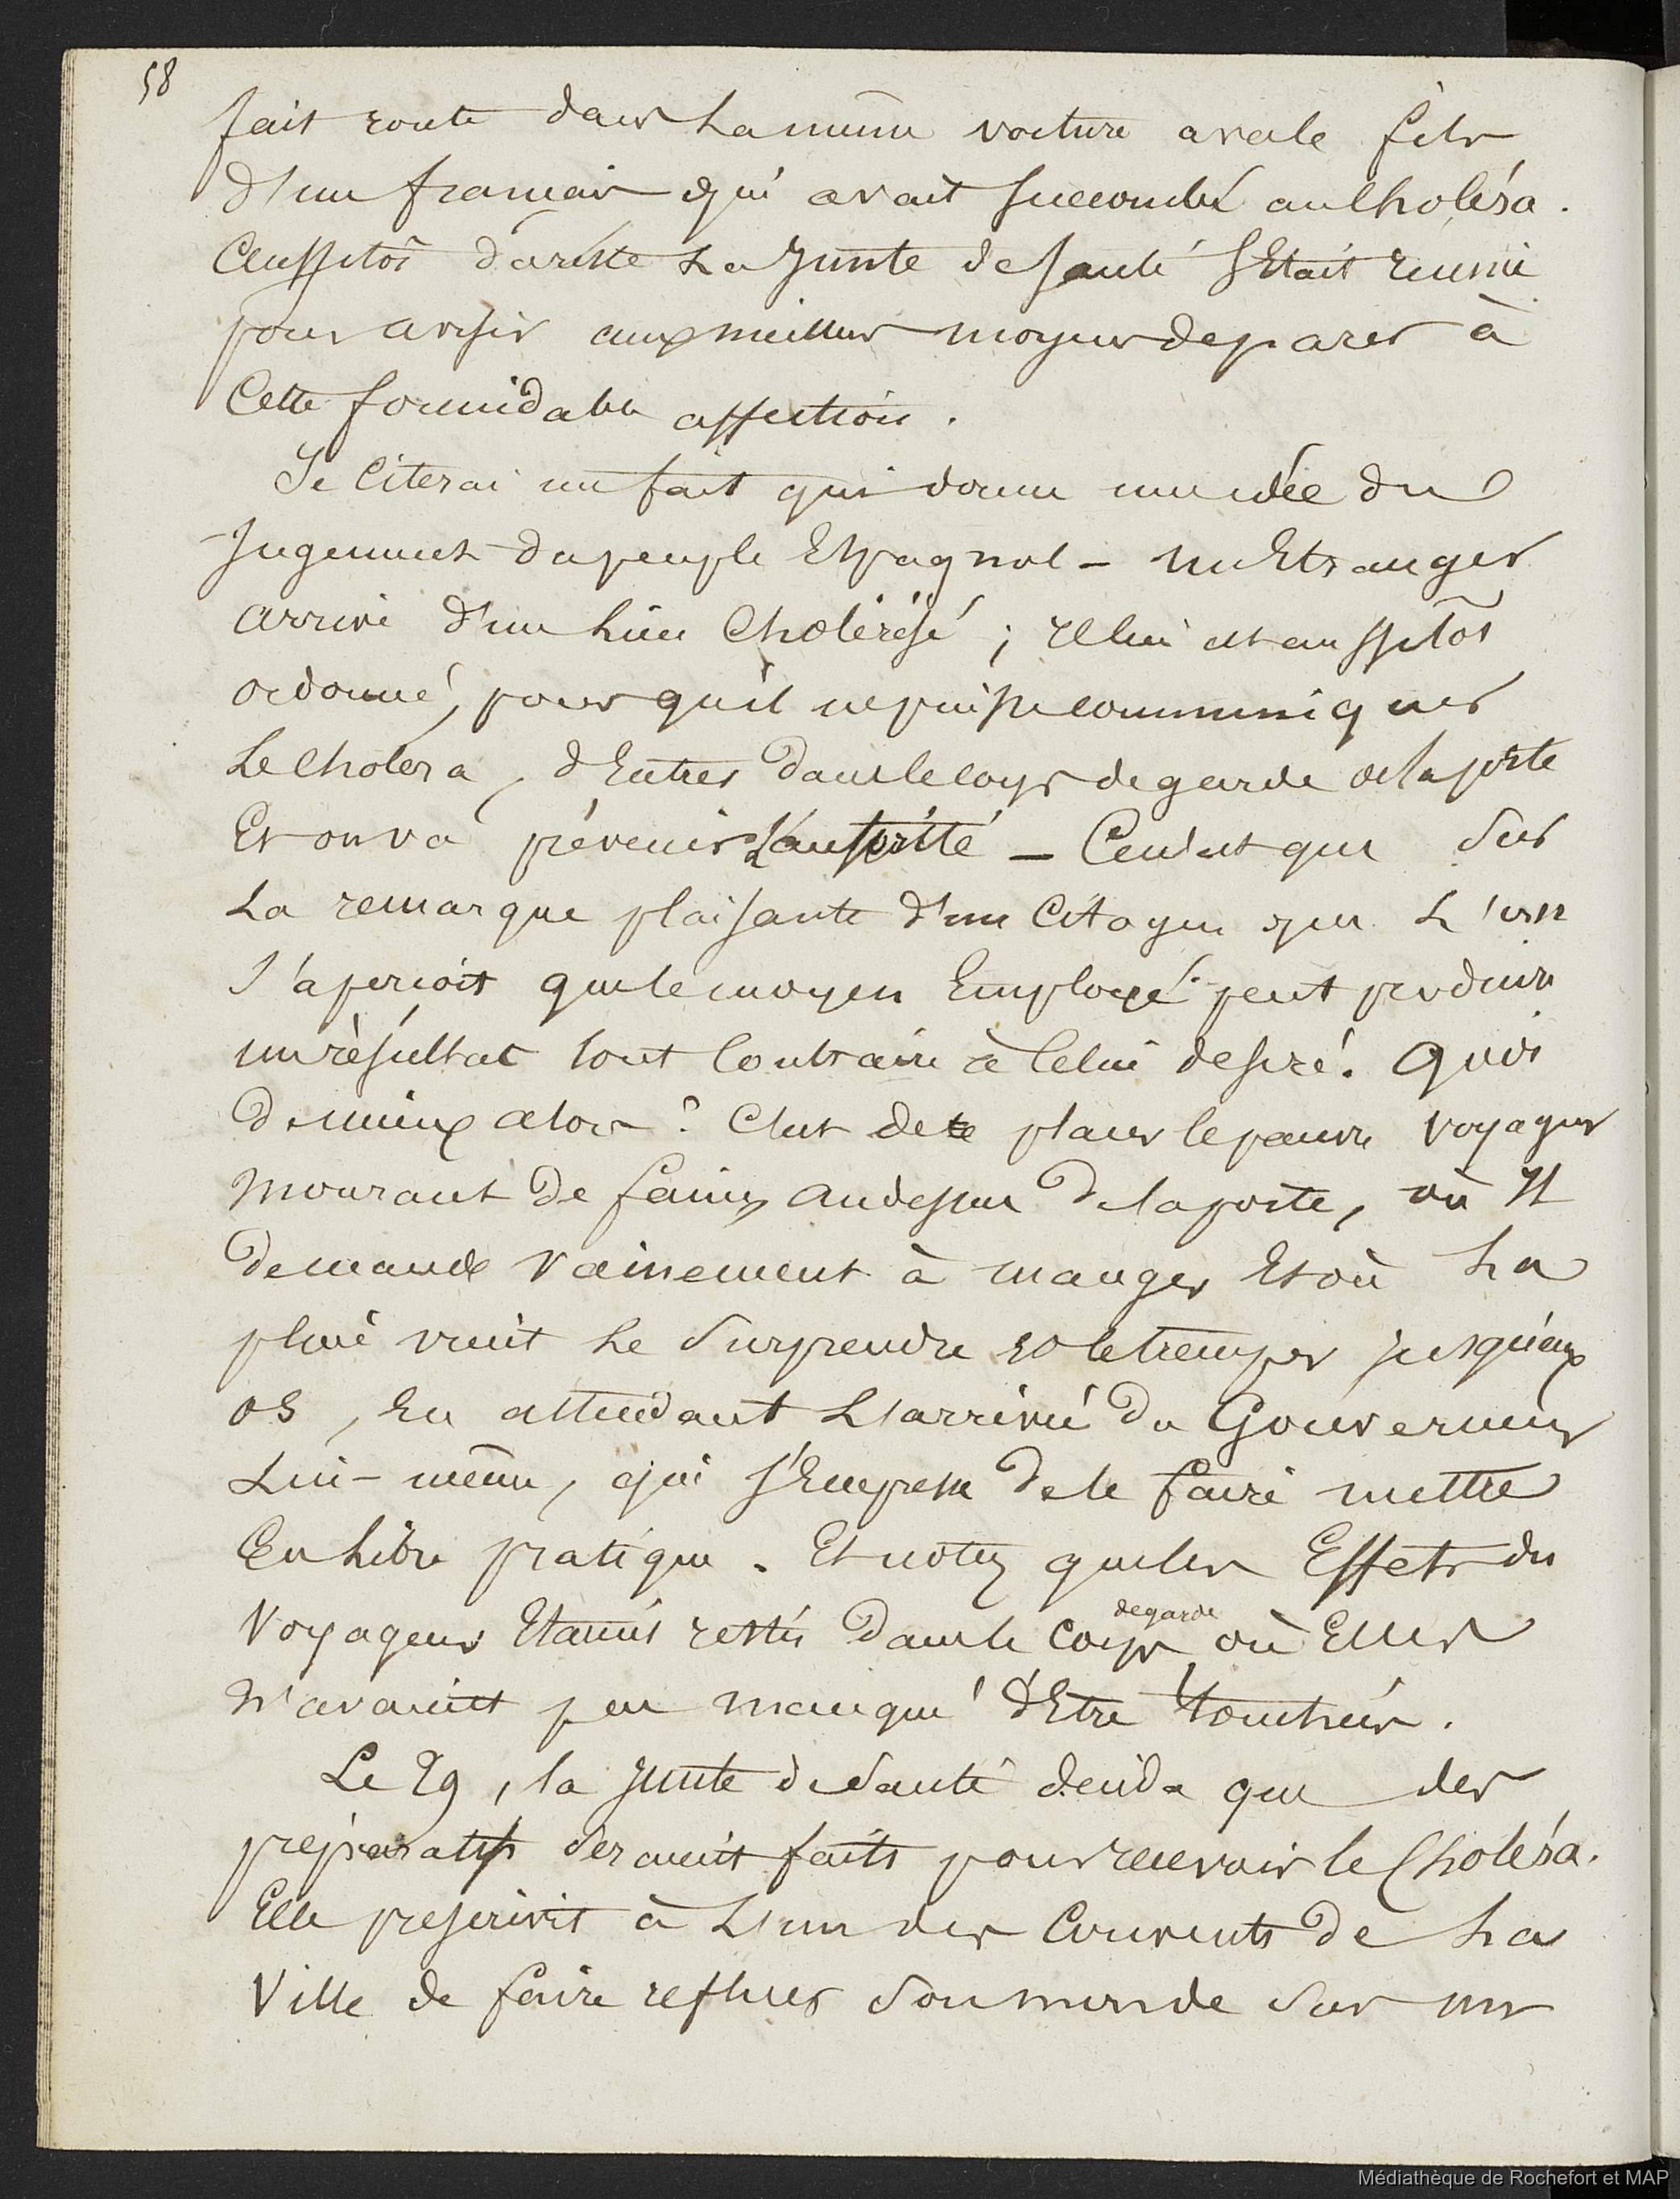 58
fait route dans la même voiture avec le fils
d'un français qui avait succombé au Choléra.
Aussitôt la Junte de Santé s'était réunie
pour aviser aux meilleurs moyens de parer à
Cette formidable affection.
Je Citerai un fait qui donne une idée du
Jugement du peuple Espagnol – un Etranger
arrive d'un lieu Cholérisé ; il lui est aussitôt
ordonné, pour qu'il ne puisse communiquer
Le Choléra, d'Entrer dans le corps de garde de la porte
Et on va prévenir L'autorité – Ce n'est que sur
La remarque plaisante d'un Citoyen que L'on
s'aperçoit que le moyen Employé peut produire
un résultat tout Contraire à Celui desiré. Quoi
de mieux alors ? C'est de te placer le pauvre Voyageur
Mourant de faim, au dessus de la porte, où Il
demande vainement à manger Et où La
pluie vient Le Surprendre Et le tremper jusqu'aux
os, En attendant L'arrivée du Gouverneur
Lui-même, qui s'Empresse de le faire mettre
En Libre pratique. Et notez que les Effets du
degarde
Voyageur Etaient restés dans le Corps où Elles
N'avaient pas manqué d'Etre touchées.
Le 29, la Junte de Santé décida que des
préparatifs seraient faits pour recevoir le Choléra.
Elle prescrivit à L'un des Couvents de La
Ville de faire refluer Son monde Sur un